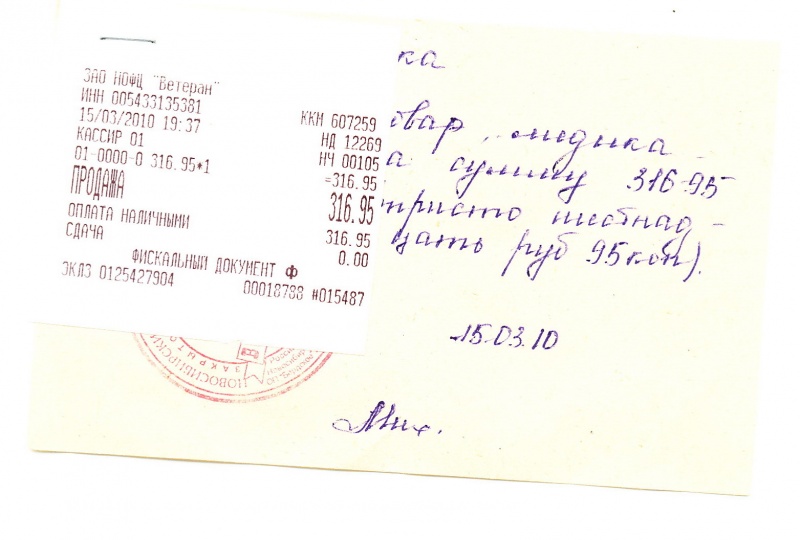 ЗАО НОФЦ "Ветеран"
ИНН 005433135381 ККМ 607259
15/03/2010 19:37 НД 12269
КАССИР 01 НЧ 00105
01-0000-0 316.95*1 =316.95
ПРОДАЖА 316.95
ОПЛАТА НАЛИЧНЫМИ 316.95
СДАЧА 0.00
ФИСКАЛЬНЫЙ ДОКУМЕНТ Ф
ЭКЛЗ 0125427904 00018788 #015487
ка
овар, медика-
а сумму 316-95
тристо шестнад-
цать руб 95коп).
15.03.10
НОВОСИБИРСКИ
ЗАКРЫТО